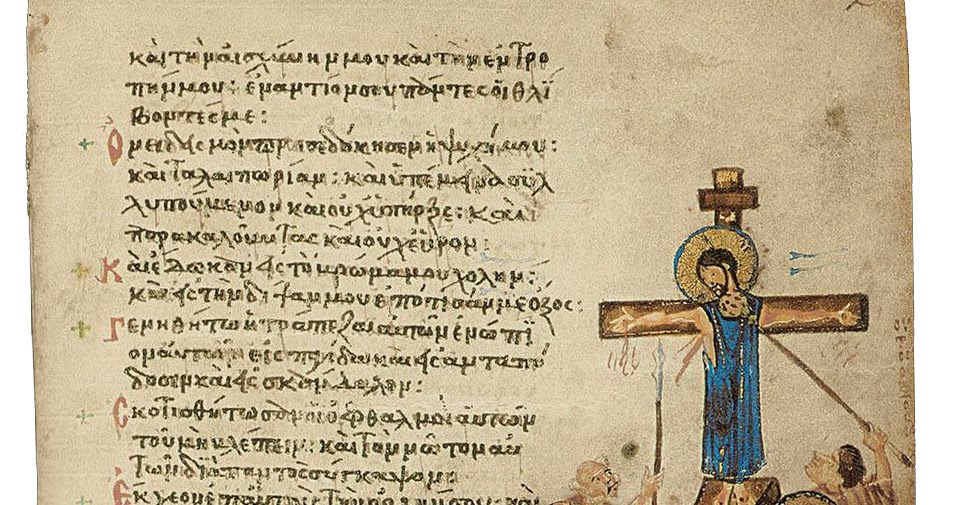 καὶ τὴν αἰσχύνην μου καὶ τὴν ἐντρο
πήν μου: ἐναντίον σου πάντες οἱ θλί
βοντές με:
Ὀνειδισμὸν προσεδόκησεν ἡ ψυχή μου:
καὶ ταλαιπωρίαν: καὶ ὑπέμεινα συλ
λυπούμενον καὶ οὐχ ὑπῆρξε: καὶ
παρακαλοῦντας καὶ οὐχ εὗρον:
Καὶ ἔδωκαν εἰς τὸ βρῶμα μου χολήν:
καὶ εἰς τὴν δίψαν μου ἐπότισάν με ὄξος:
Γενηθήτω ἡ τράπεζα αὐτῶν ἐνώπι
ον αὐτῶν εἰς παγίδα καὶ εἰς ἀνταπό
δοσιν καὶ εἰς σκάνδαλον:
Σκοτισθήτωσαν οἱ ὀφθαλμοὶ αὐτῶν
τοῦ μὴ βλέπειν: καὶ τὸν νῶτον αὐ
τῶν διὰ παντὸς σύγκαμψον:
Ἔκχεον ἐπ αὐτοὺς τὴν ὀργήν σου: καὶ